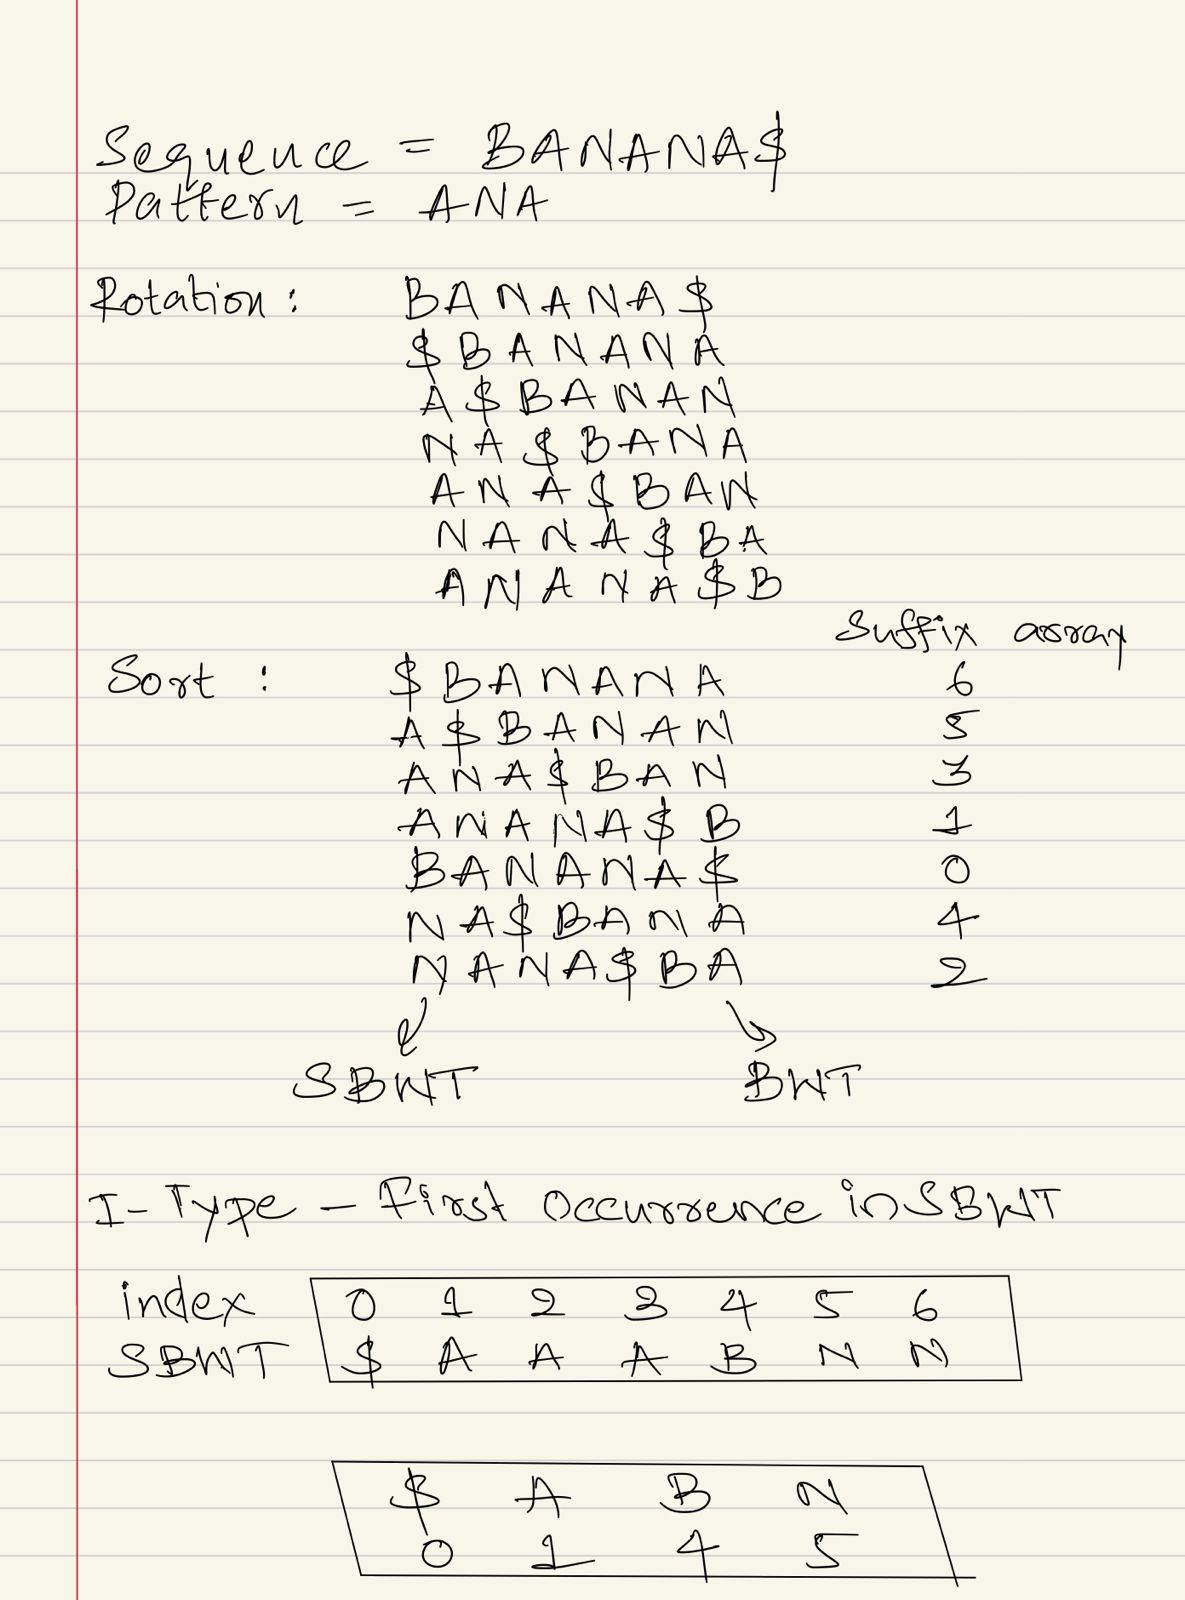 Sequence = BANANA$
Pattern = ANA
Rotation : BANANA$
$BANANA
A$BANAN
NA$BANA
ANA$BAN
NANA$BA
ANANA$B
Suffix array
Sort : $BANANA 6
A$BANAN 5
ANA$BAN 3
ANANA$B 1
BANANA$ 0
NA$BANA 4
NANA$BA 2
SBWT BWT
I-Type - First Occurrence in SBWT
index 0 1 2 3 4 5 6
SBWT $ A A A B N N
$ A B N
0 1 4 5